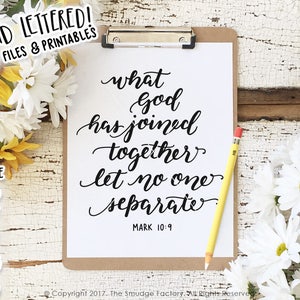 D LETTERED!
FILES & PRINTABLES
what
God
has joined
together
let no one
separate
MARK 10:9
© Copyright 2017. The Smudge Factory. All Rights Reserved.